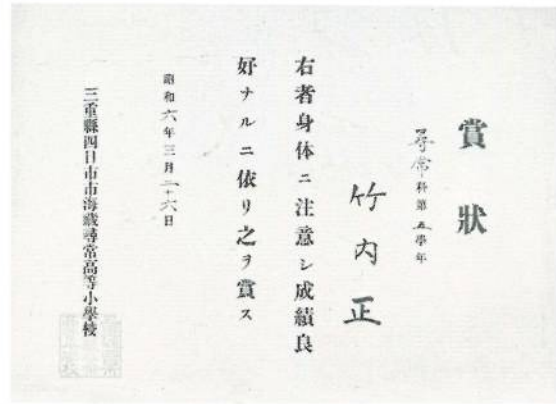 賞狀
尋常科第五學年
竹内正
右者身体ニ注意シ成績良
好ナルニ依リ之ヲ賞ス
昭和六年三月二十六日
三重縣四日市市海蔵尋常高等小學校